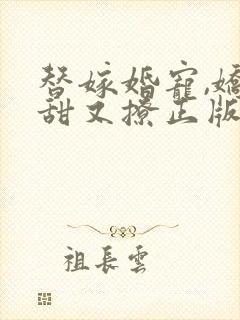 替嫁婚寵,嬌
甜又撩正版
祖長雲